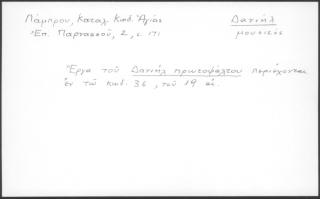 Λάμπρου, Καταλ. Κωδ. Ἁγίου
Δανιήλ
Ἐπ. Παρνασσοῦ, 2, σ. 171
μουσικός
Ἔργα τοῦ Δανιήλ πρωτοψάλτου περιέχονται
ἐν τῷ κώδ. 36, τοῦ 19 αἰ.